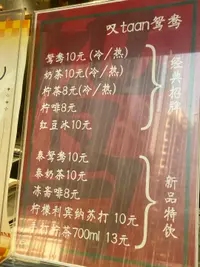 叹taan鸳鸯
鸳鸯10元(冷/热)
奶茶10元(冷/热)
柠茶8元(冷/热)
柠啡8元
红豆冰10元
经典招牌
泰鸳鸯10元
泰奶茶10元
冻斋啡8元
柠檬利宾纳苏打 10元
茶700ml 13元
新品特饮